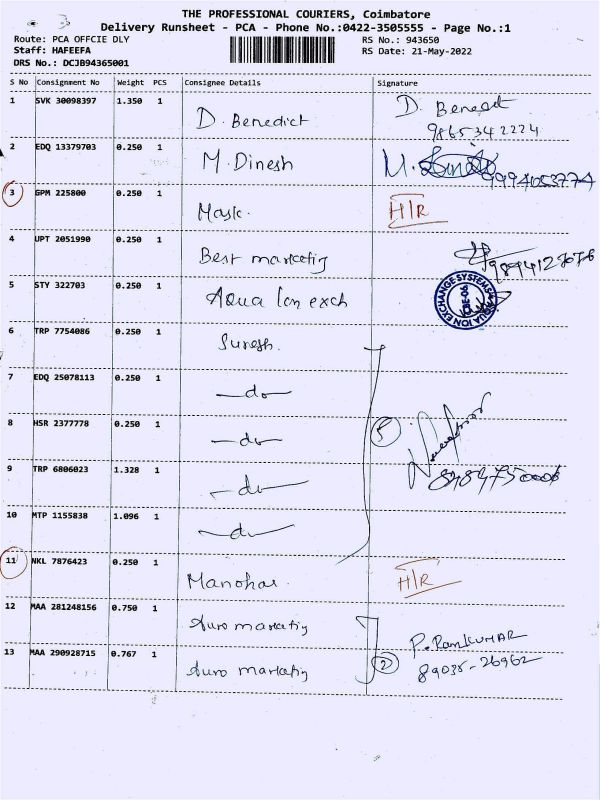 THE PROFESSIONAL COURIERS, Coimbatore
Delivery Runsheet - PCA - Phone No.:0422-3505555 - Page No.:1
Route: PCA OFFCIE DLY RS No.: 943650
Staff: HAFEEFA RS Date: 21-May-2022
DRS No.: DCJB94365001
S No Consignment No Weight PCS Consignee Details Signature
1 SVK 30098397 1.350 1
D. Benedict D. Benedict
9865342224
2 EDQ 13379703 0.250 1
M. Dinesh 9994053774
3 GPM 225800 0.250 1
Mask. H/R
4 UPT 2051990 0.250 1
Best marketing
5 STY 322703 0.250 1
Aqua Ion exch AQUA ION EXCHANGE SYSTEMS
6 TRP 7754086 0.250 1
Suresh.
7 EDQ 25078113 0.250 1
-do-
8 HSR 2377778 0.250 1
-do- 5
9 TRP 6806023 1.328 1
-do-
10 MTP 1155838 1.096 1
-do-
11 NKL 7876423 0.250 1
Manohar. H/R
12 MAA 281248156 0.750 1
Auro marketing P. RamKUMAR
13 MAA 290928715 0.767 1
Auro marketing 2 89035-26962